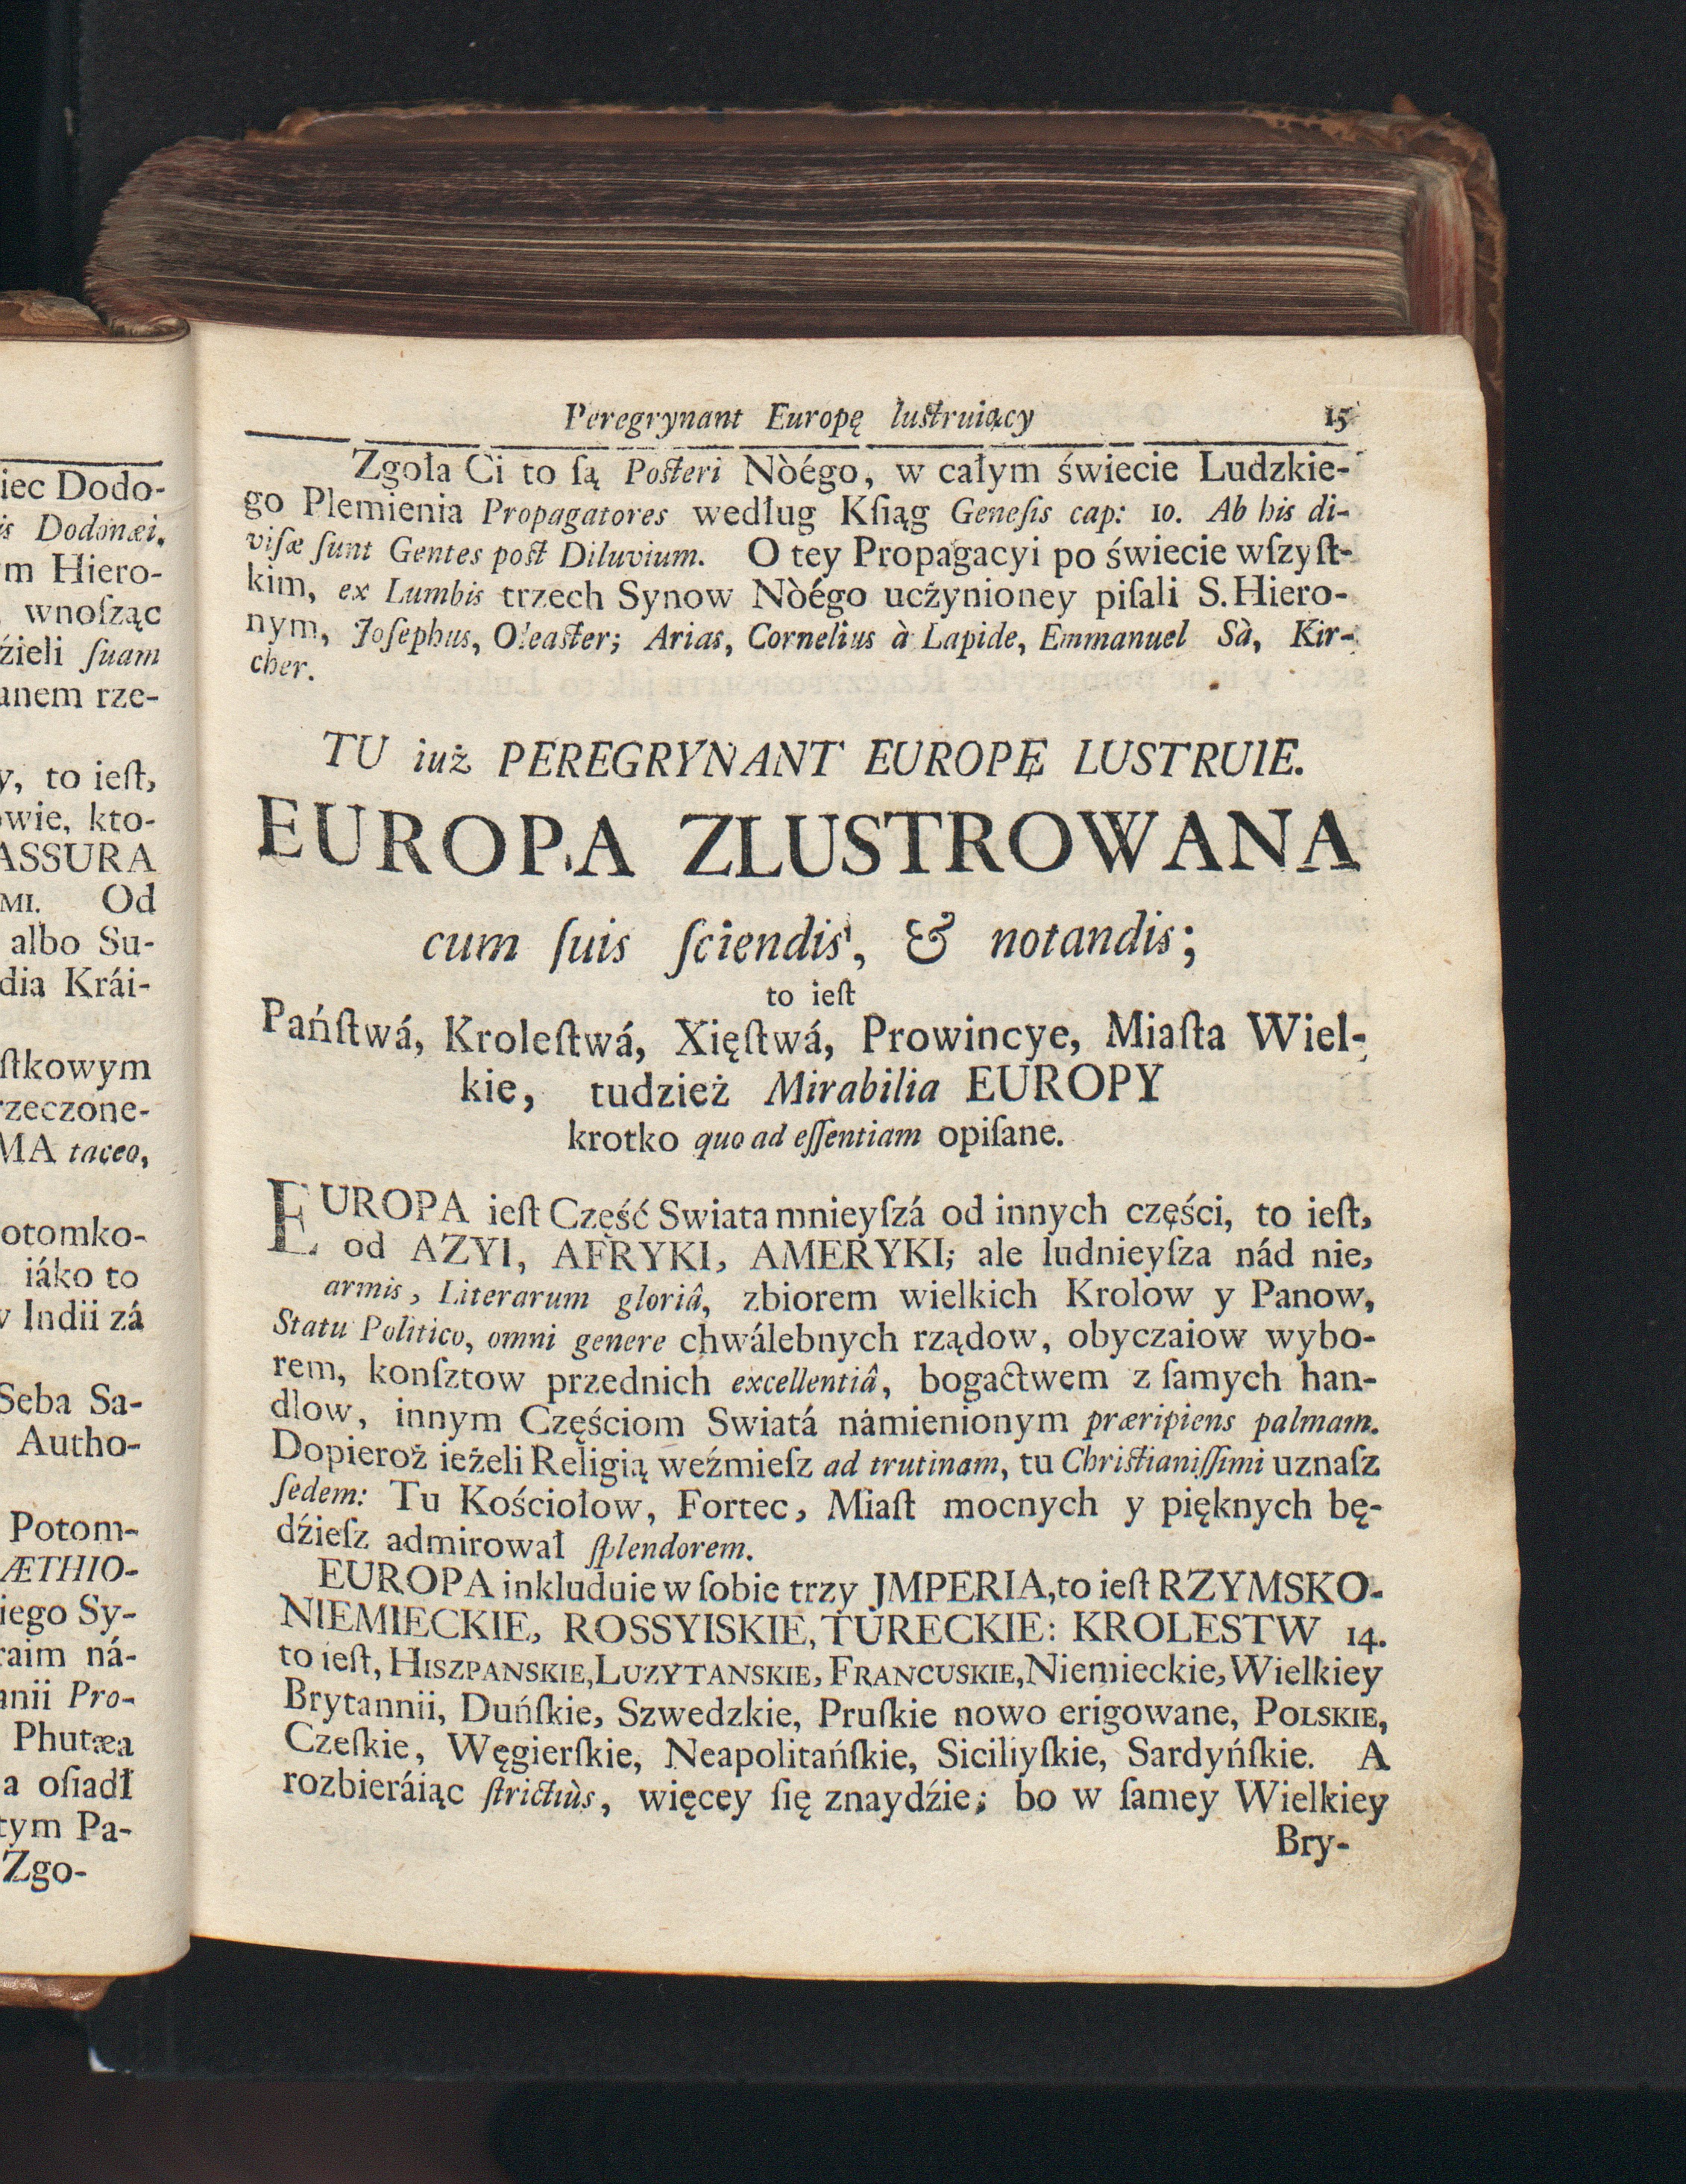 iec Dodo-
is Dodonæi.
ym Hiero-
wnoſząc
źieli ſuam
anem rze-
y, to ieſt,
owie, kto-
ASSURA
MI. Od
albo Su-
dia Krái-
ſtkowym
rzeczone-
MA taceo,
otomko-
iáko to
v Indii zá
Seba Sa-
Autho-
Potom-
ÆTHIO-
iego Sy-
raim ná-
anii Pro-
Phutæa
a oſiadł
tym Pa-
Zgo-
Peregrynant Europę luſtruiący 15
Zgoła Ci to ſą Poſteri Nòégo, w całym świecie Ludzkie-
go Plemienia Propagatores według Kſiąg Geneſis cap: 10. Ab his di-
viſæ ſunt Gentes poſt Diluvium. O tey Propagacyi po świecie wſzyſt-
kim, ex Lumbis trzech Synow Nòégo uczynioney piſali S. Hiero-
nym, Joſephus, Oleaſter; Arias, Cornelius à Lapide, Emmanuel Sà, Kir-
cher.
TU iuż PEREGRYNANT EUROPĘ LUSTRUIE.
EUROPA ZLUSTROWANA
cum ſuis ſciendis, & notandis;
to ieſt
Pańſtwá, Kroleſtwá, Xięſtwá, Prowincye, Miaſta Wiel-
kie, tudzież Mirabilia EUROPY
krotko quo ad eſſentiam opiſane.
EUROPA ieſt Część Swiata mnieyſzá od innych części, to ieſt,
od AZYI, AFRYKI, AMERYKI; ale ludnieyſza nád nie,
armis, Literarum gloriâ, zbiorem wielkich Krolow y Panow,
Statu Politico, omni genere chwálebnych rządow, obyczaiow wybo-
rem, konſztow przednich excellentiâ, bogactwem z ſamych han-
dlow, innym Częściom Swiatá námienionym præripiens palmam.
Dopieroż ieżeli Religią weźmieſz ad trutinam, tu Chriſtianiſſimi uznaſz
ſedem: Tu Kościołow, Fortec, Miaſt mocnych y pięknych bę-
dźieſz admirował ſplendorem.
EUROPA inkluduie w ſobie trzy JMPERIA, to ieſt RZYMSKO-
NIEMIECKIE, ROSSYISKIE, TURECKIE: KROLESTW 14.
to ieſt, HISZPANSKIE, LUZYTANSKIE, FRANCUSKIE, Niemieckie, Wielkiey
Brytannii, Duńſkie, Szwedzkie, Pruſkie nowo erigowane, POLSKIE,
Czeſkie, Węgierſkie, Neapolitańſkie, Siciliyſkie, Sardyńſkie. A
rozbieráiąc ſtrictiùs, więcey ſię znaydźie; bo w ſamey Wielkiey
Bry-